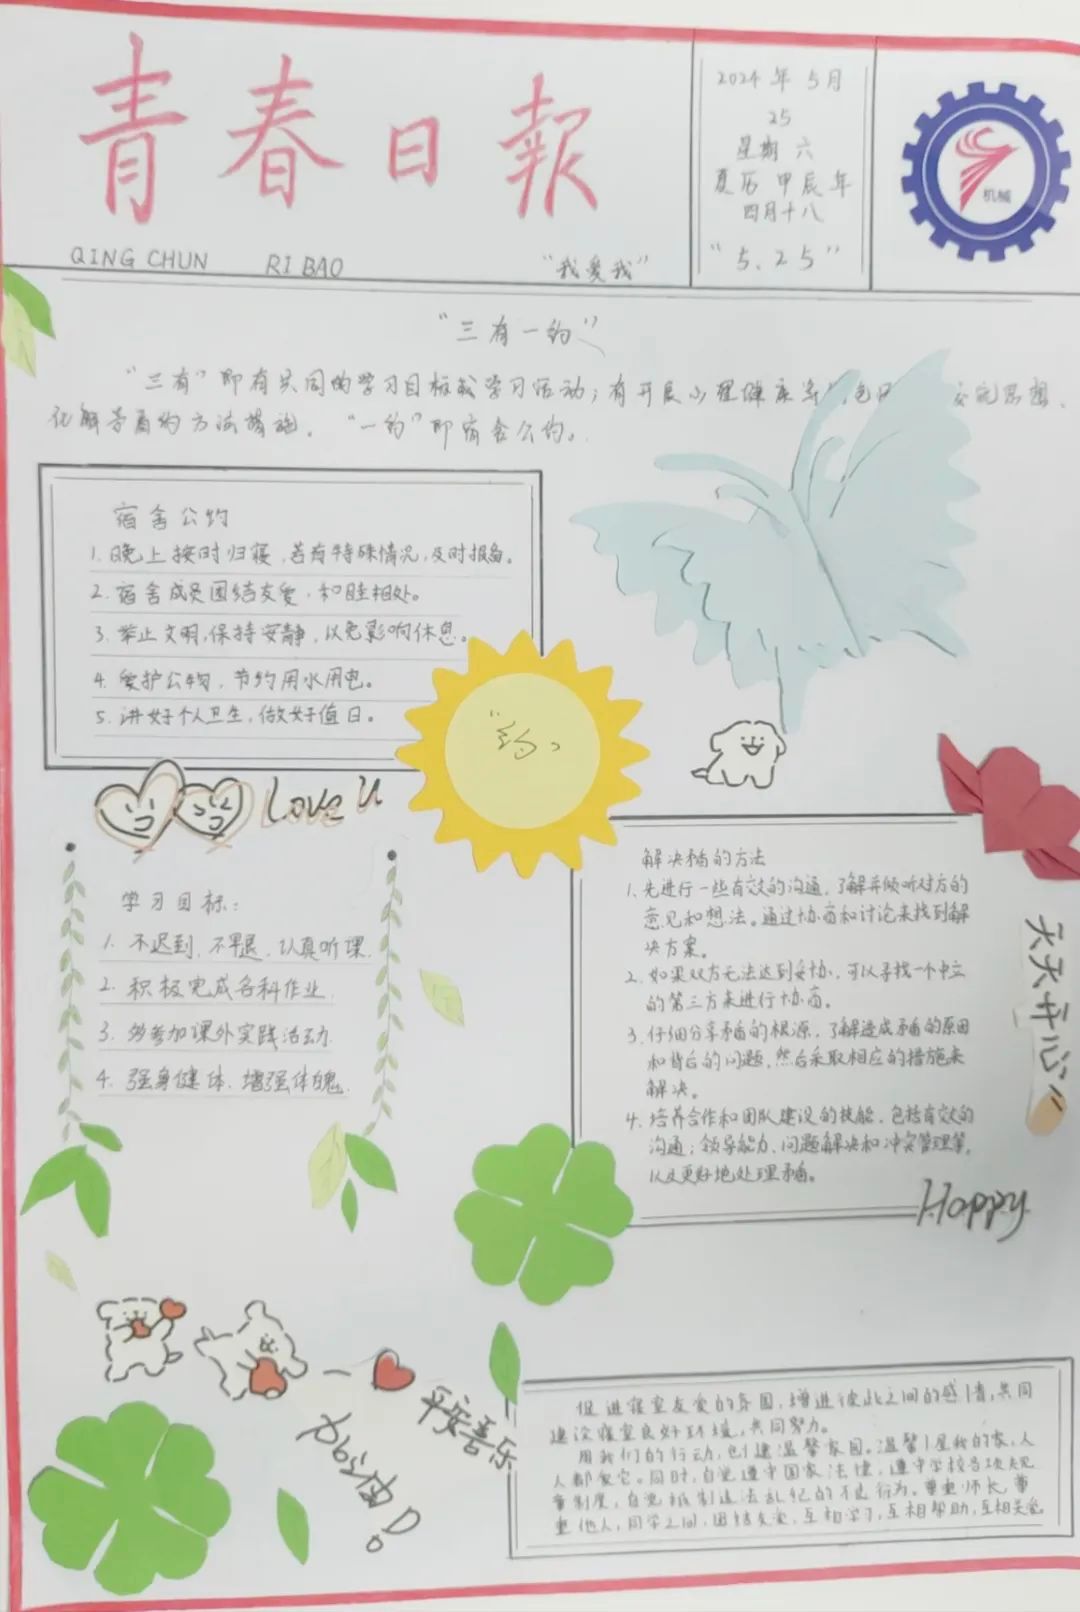 青春日報
QING CHUN RI BAO
“我爱我”
2024年5月
25
星期六
夏历甲辰年
四月十八
“5.25”
机械
“三有一约”
“三有”即有共同的学习目标或学习活动；有开展心理健康等 色 交流思想、
化解矛盾的方法措施。“一约”即宿舍公约。
宿舍公约
1.晚上按时归寝，若有特殊情况，及时报备。
2.宿舍成员团结友爱，和睦相处。
3.举止文明，保持安静，以免影响休息。
4.爱护公物，节约用水用电。
5.讲好个人卫生，做好值日。
Love U
学习目标：
1.不迟到，不早退，认真听课
2.积极完成各科作业
3.多参加课外实践活动
4.强身健体，增强体魄
解决矛盾的方法
1.先进行一些有效的沟通，了解并倾听对方的
意见和想法。通过协商和讨论来找到解
决方案。
2.如果双方无法达到妥协，可以寻找一个中立
的第三方来进行协商。
3.仔细分享矛盾的根源，了解造成矛盾的原因
和背后的问题，然后采取相应的措施来
解决。
4.培养合作和团队建设的技能，包括有效的
沟通；领导能力、问题解决和冲突管理等，
以及更好地处理矛盾。
天天开心
Happy
平安喜乐
促进寝室友爱的氛围，增进彼此之间的感情，共同
建设寝室良好环境，共同努力。
用我们的行动，创建温馨家园。温馨 屋我的家，人
人都爱它。同时，自觉遵守国家法律，遵守学校各项规
章制度，自觉抵制违法乱纪的不良行为。尊重师长，尊
重他人，同学之间，团结友爱，互相学习，互相帮助，互相关爱